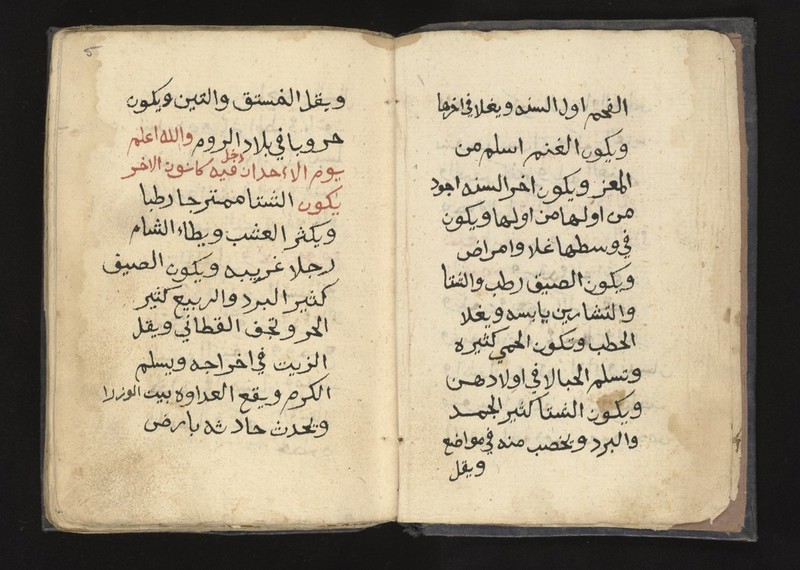 القمح اول السنه ويغلا في اخرها
ويكون الغنم اسلم من
المعز ويكون اخر السنه اجود
من اولها من اولها ويكون
في وسطها غلا وامراض
ويكون الصيف رطب والشتا
والتشارين يابسه ويغلا
الحطب وتكون الحمي كثيره
وتسلم الحبالا في اولادهن
ويكون الشتا كثير الجمد
والبرد وتخصب منه في مواضع
ويقل
ويقل الفستق والتين ويكون
حروبا في بلاد الروم والله اعلم
يوم الاحد ان دخل فيه كانون الاخر
يكون الشتا ممتزجا رطبا
ويكثر العشب ويطاء الشام
رجلا غريبه ويكون الصيف
كثير البرد والربيع كثير
الحر وتجف القطاني ويقل
الزيت في اخراجه ويسلم
الكرم ويقع العداوه بيت الوزرا
وتحدث حادثه بارض